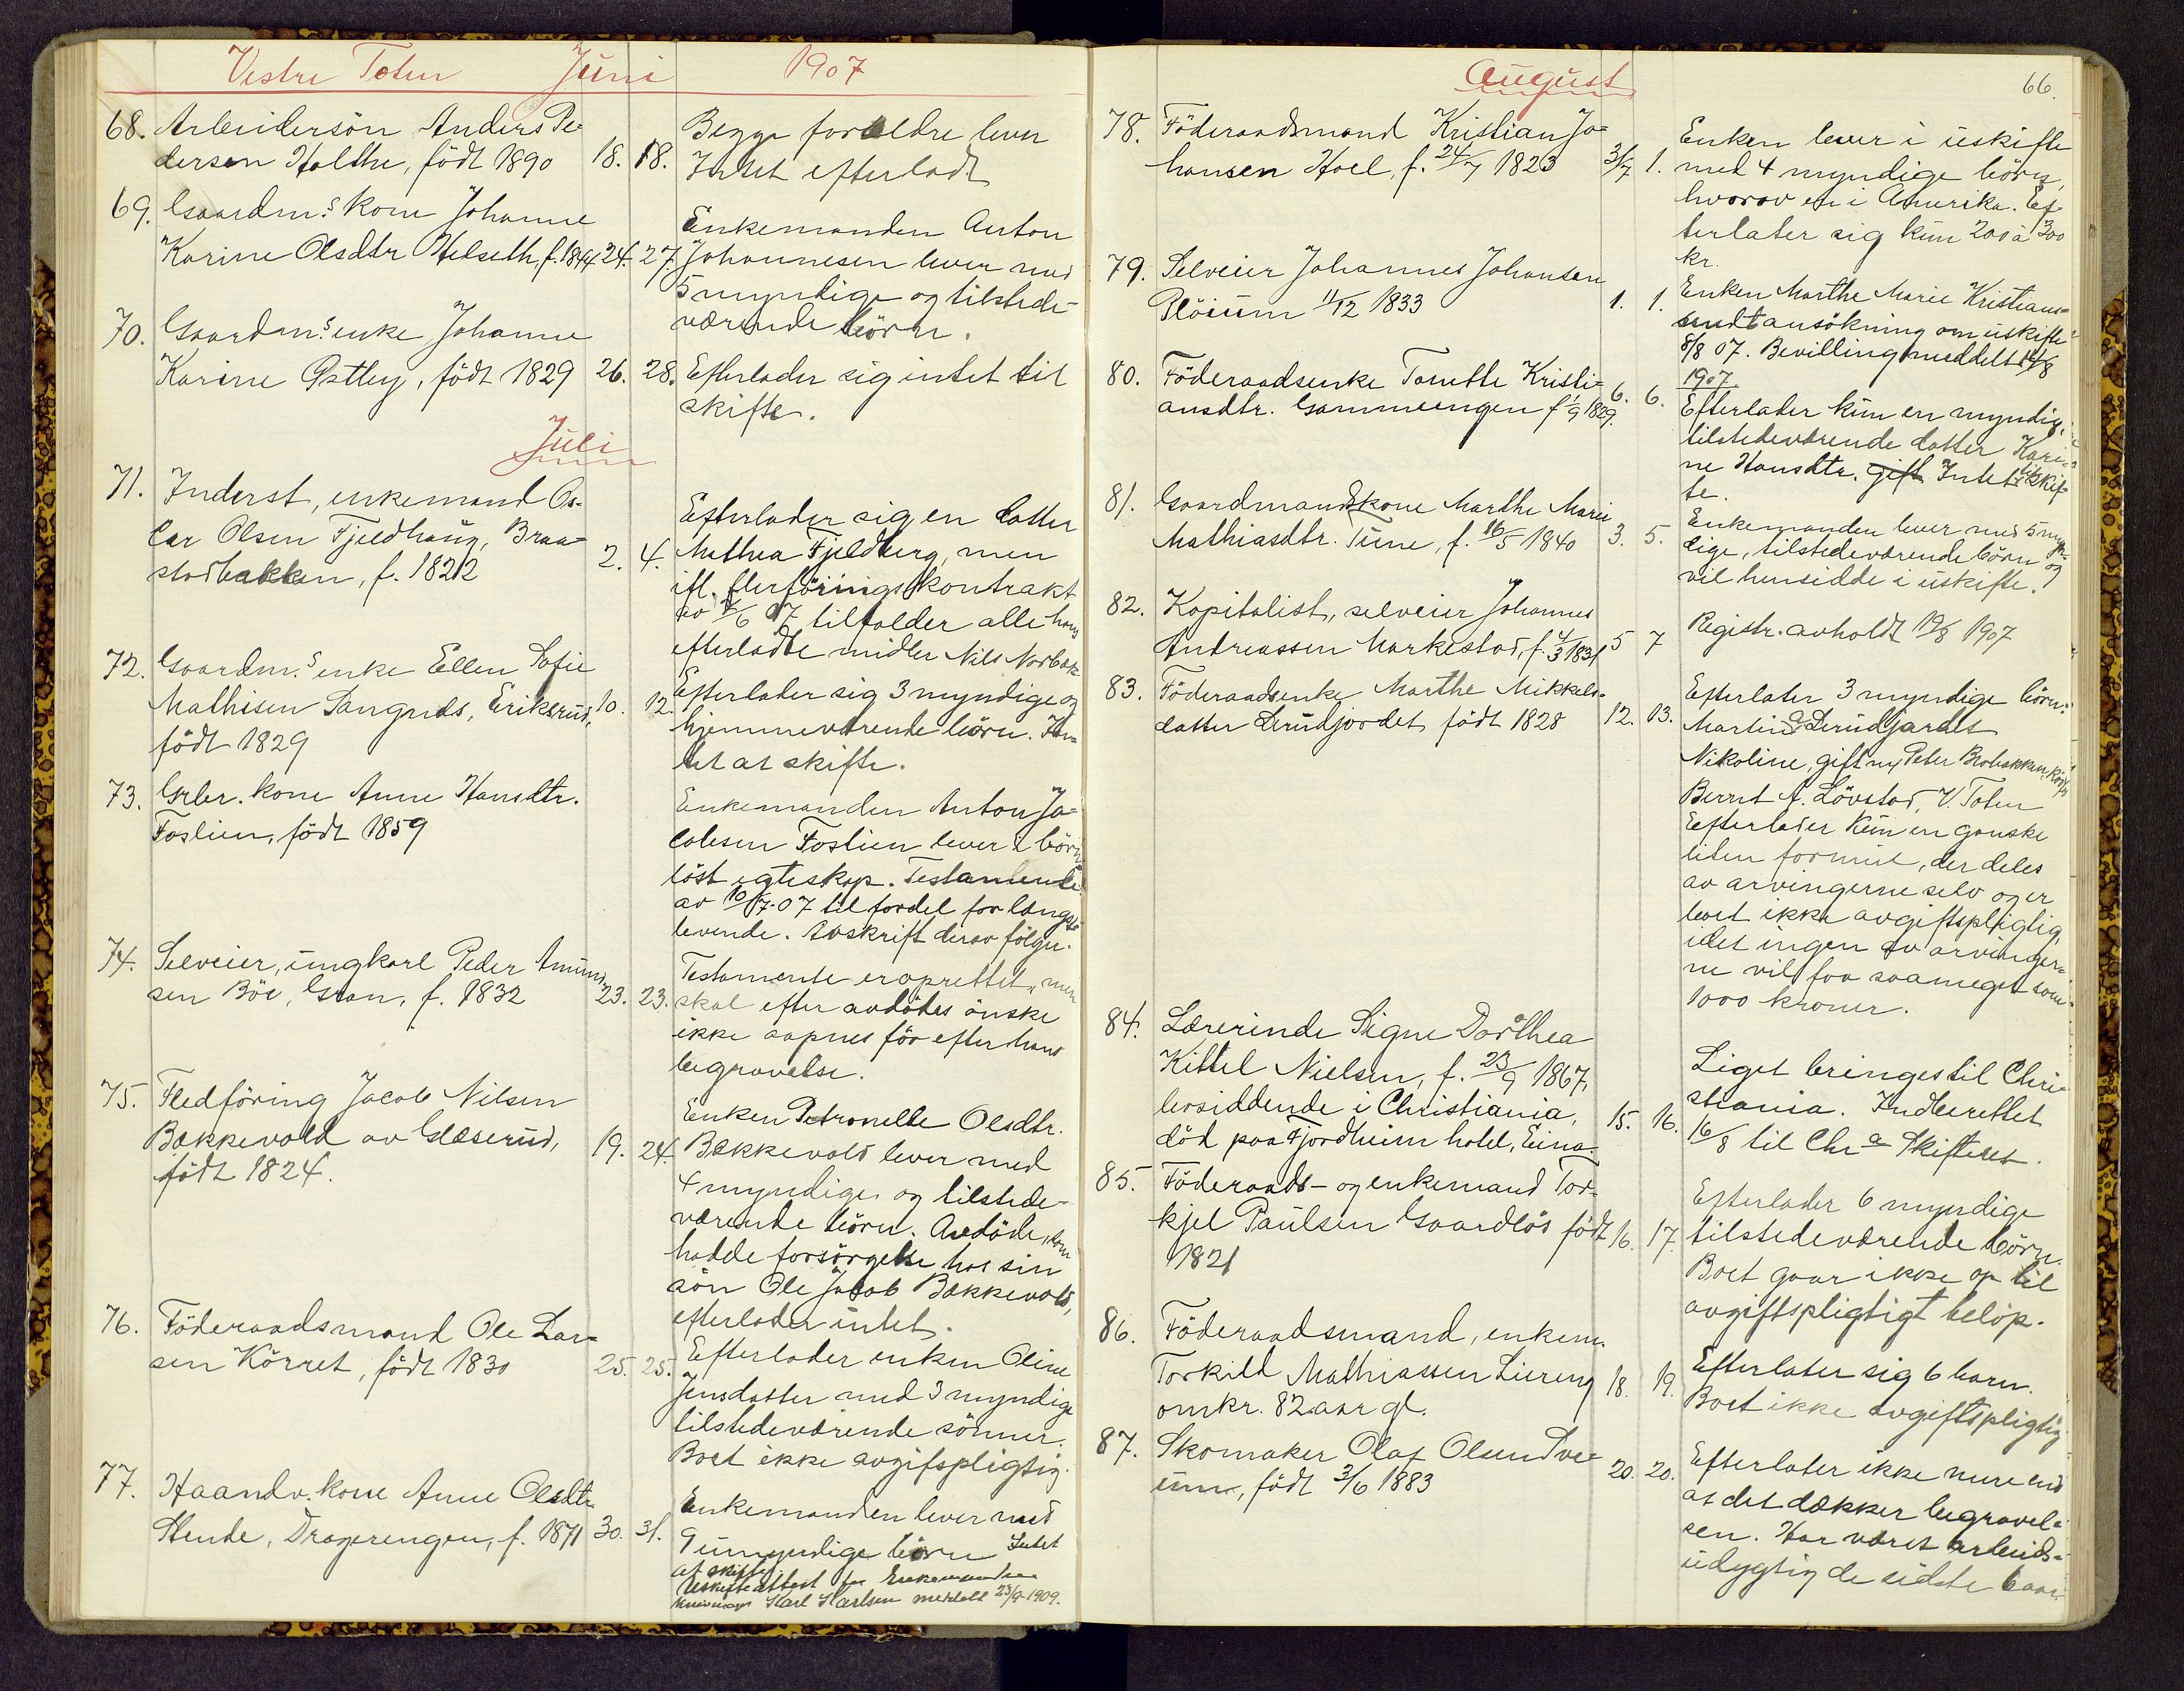 Vestre Toten Juni 1907
68. Arbeidersøn Anders Pe-
dersen Holthe, födt 1890 18. 18.
Begge forældre lever
Intet efterladt
69. Gaardm.s kone Johanne
Karine Olsdtr Helseth, f. 1844 24. 27.
Enkemanden Anton
Johannesen lever med
5 myndige og tilstede-
værende börn.
70. Gaardm.s enke Johanne
Karine Østby, födt 1829 26. 28.
Efterlader sig intet til
skifte.
Juli
71. Inderst, enkemand Os-
car Olsen Fjeldhaug, Braa-
stadbakken, f. 1822 2. 4.
Efterlader sig en datter
Mathea Fjeldberg, men
ifl. flerföringskontrakt
av 07 tilfalder alle hans
efterladte midler Nils Norbæk
72. Gaardm.s enke Ellen Sofie
Mathisen Sangnes, Eriksrud, 10. 12.
födt 1829
Efterlader sig 3 myndige og
hjemmeværende börn. In-
tet at skifte.
73. Grbr. kone Anne Hansdtr.
Foslien, födt 1859
Enkemanden Anton Ja-
cobsen Foslien lever i börn-
löst egteskap. Testamente
av 10/7-07 til fordel for længst-
levende. Avskrift derav fölger.
74. Selveier, ungkarl Peder Amund-
sen Böe, Gran, f. 1832 23. 23.
Testamente er oprettet, men
skal efter avdödes önske
ikke aapnes för efter hans
begravelse.
75. Fledföring Jacob Nilsen
Bækkevold av Glæserud, 19. 24.
födt 1824.
Enken Petronelle Olsdtr.
Bækkevold lever med
4 myndige og tilstede-
værende börn. Avdöde, som
hadde forsörgelse hos sin
sön Ole Jacob Bækkevold,
efterlader intet.
76. Föderaadsmand Ole Lar-
sen Körret, födt 1830 25. 25.
Efterlader enken Oline
Jensdatter med 3 myndige
tilstedeværende sönner.
Boet ikke avgifspligtig.
77. Haandv. kone Anne Olsdtr
Stende, Dragerengen, f. 1871 30. 31.
Enkemanden lever med
9 umyndige börn Intet
at skifte.
Uskifteattest for Enkemanden
Karl Karlsen meddelt 23/9-1909.
August 66.
78. Föderaadsmand Kristian Jo-
hansen Hoel, f. 24/7 1823 31/7 1.
Enken lever i uskifte
med 4 myndige börn,
hvorav en i Amerika. Ef-
terlater sig kun 200 à 300
kr.
79. Selveier Johannes Johansen
Plöium 11/12 1833 1. 1.
Enken Marthe Marie Kristians-
sendt ansökning om uskifte
8/8 07. Bevilling meddelt 14/8
1907.
80. Föderaadsenke Tonette Kristi-
ansdtr. Gammeengen f 1/9 1829. 6. 6.
Efterlater kun en myndig,
tilstedeværende datter Kari-
ne Hansdtr. gift Intet til skif-
te.
81. Gaardmandskone Marthe Marie
Mathiasdtr. Tune, f. 16/5 1840 3. 5.
Enkemanden lever med 5 myn-
dige, tilstedeværende börn og
vil hensidde i uskifte.
82. Kapitalist, selveier Johannes
Andreassen Markestad, f. 4/3 1831 5 7
Registr. avholdt 19/8 1907
83. Föderaadsenke Marthe Mikkels-
datter Lerudjordet, födt 1828 12. 13.
Efterlater 3 myndige börn:
Martin Lerudjordet
Nikoline, gift m/ Peter Brobakken,
Bernt A. Lövstad, V. Toten
Efterlater kun en ganske
liten formue, der deles
av arvingerne selv og er
boet ikke avgiftspligtig,
idet ingen av arvinger-
ne vil faa saameget som
1000 kroner.
84. Lærerinde Signe Dorothea
Kittel Nielsen, f. 23/9 1867,
bosiddende i Christiania, 15. 16.
död paa Fjordheim hotel, Eina.
Liget bringes til Chri-
stiania. Indberettet
16/8 til Chra Skifteret.
85. Föderaads- og enkemand Tor-
kjel Paulsen Gaardlös födt 16. 17.
1821
Efterlader 6 myndige
tilstedeværende börn.
Boet gaar ikke op til
avgiftspligtigt belöp.
86. Föderaadsmand, enkem.
Torkild Mathiassen Liereng 18. 19.
omkr. 82 aar gl.
Efterlater sig 6 barn.
Boet ikke avgiftspligtig
87. Skomaker Olaf Olsen Sve-
um, födt 3/6 1883 20. 20.
Efterlater ikke mere end
at det dækker begravel-
sen. Har været arbeids-
udygtig de sidste 6 aar.